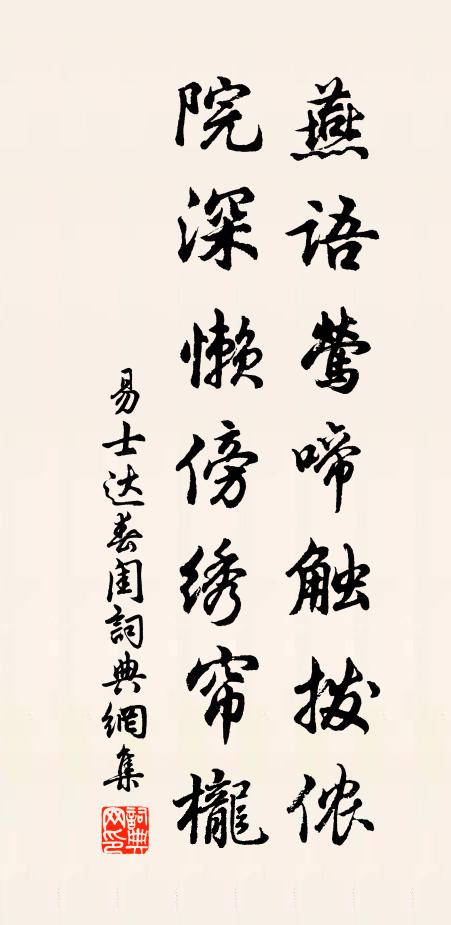 燕语莺啼触拨侬
院深懒傍绣帘櫳
易士达春闺詞典網集
詞典
网印